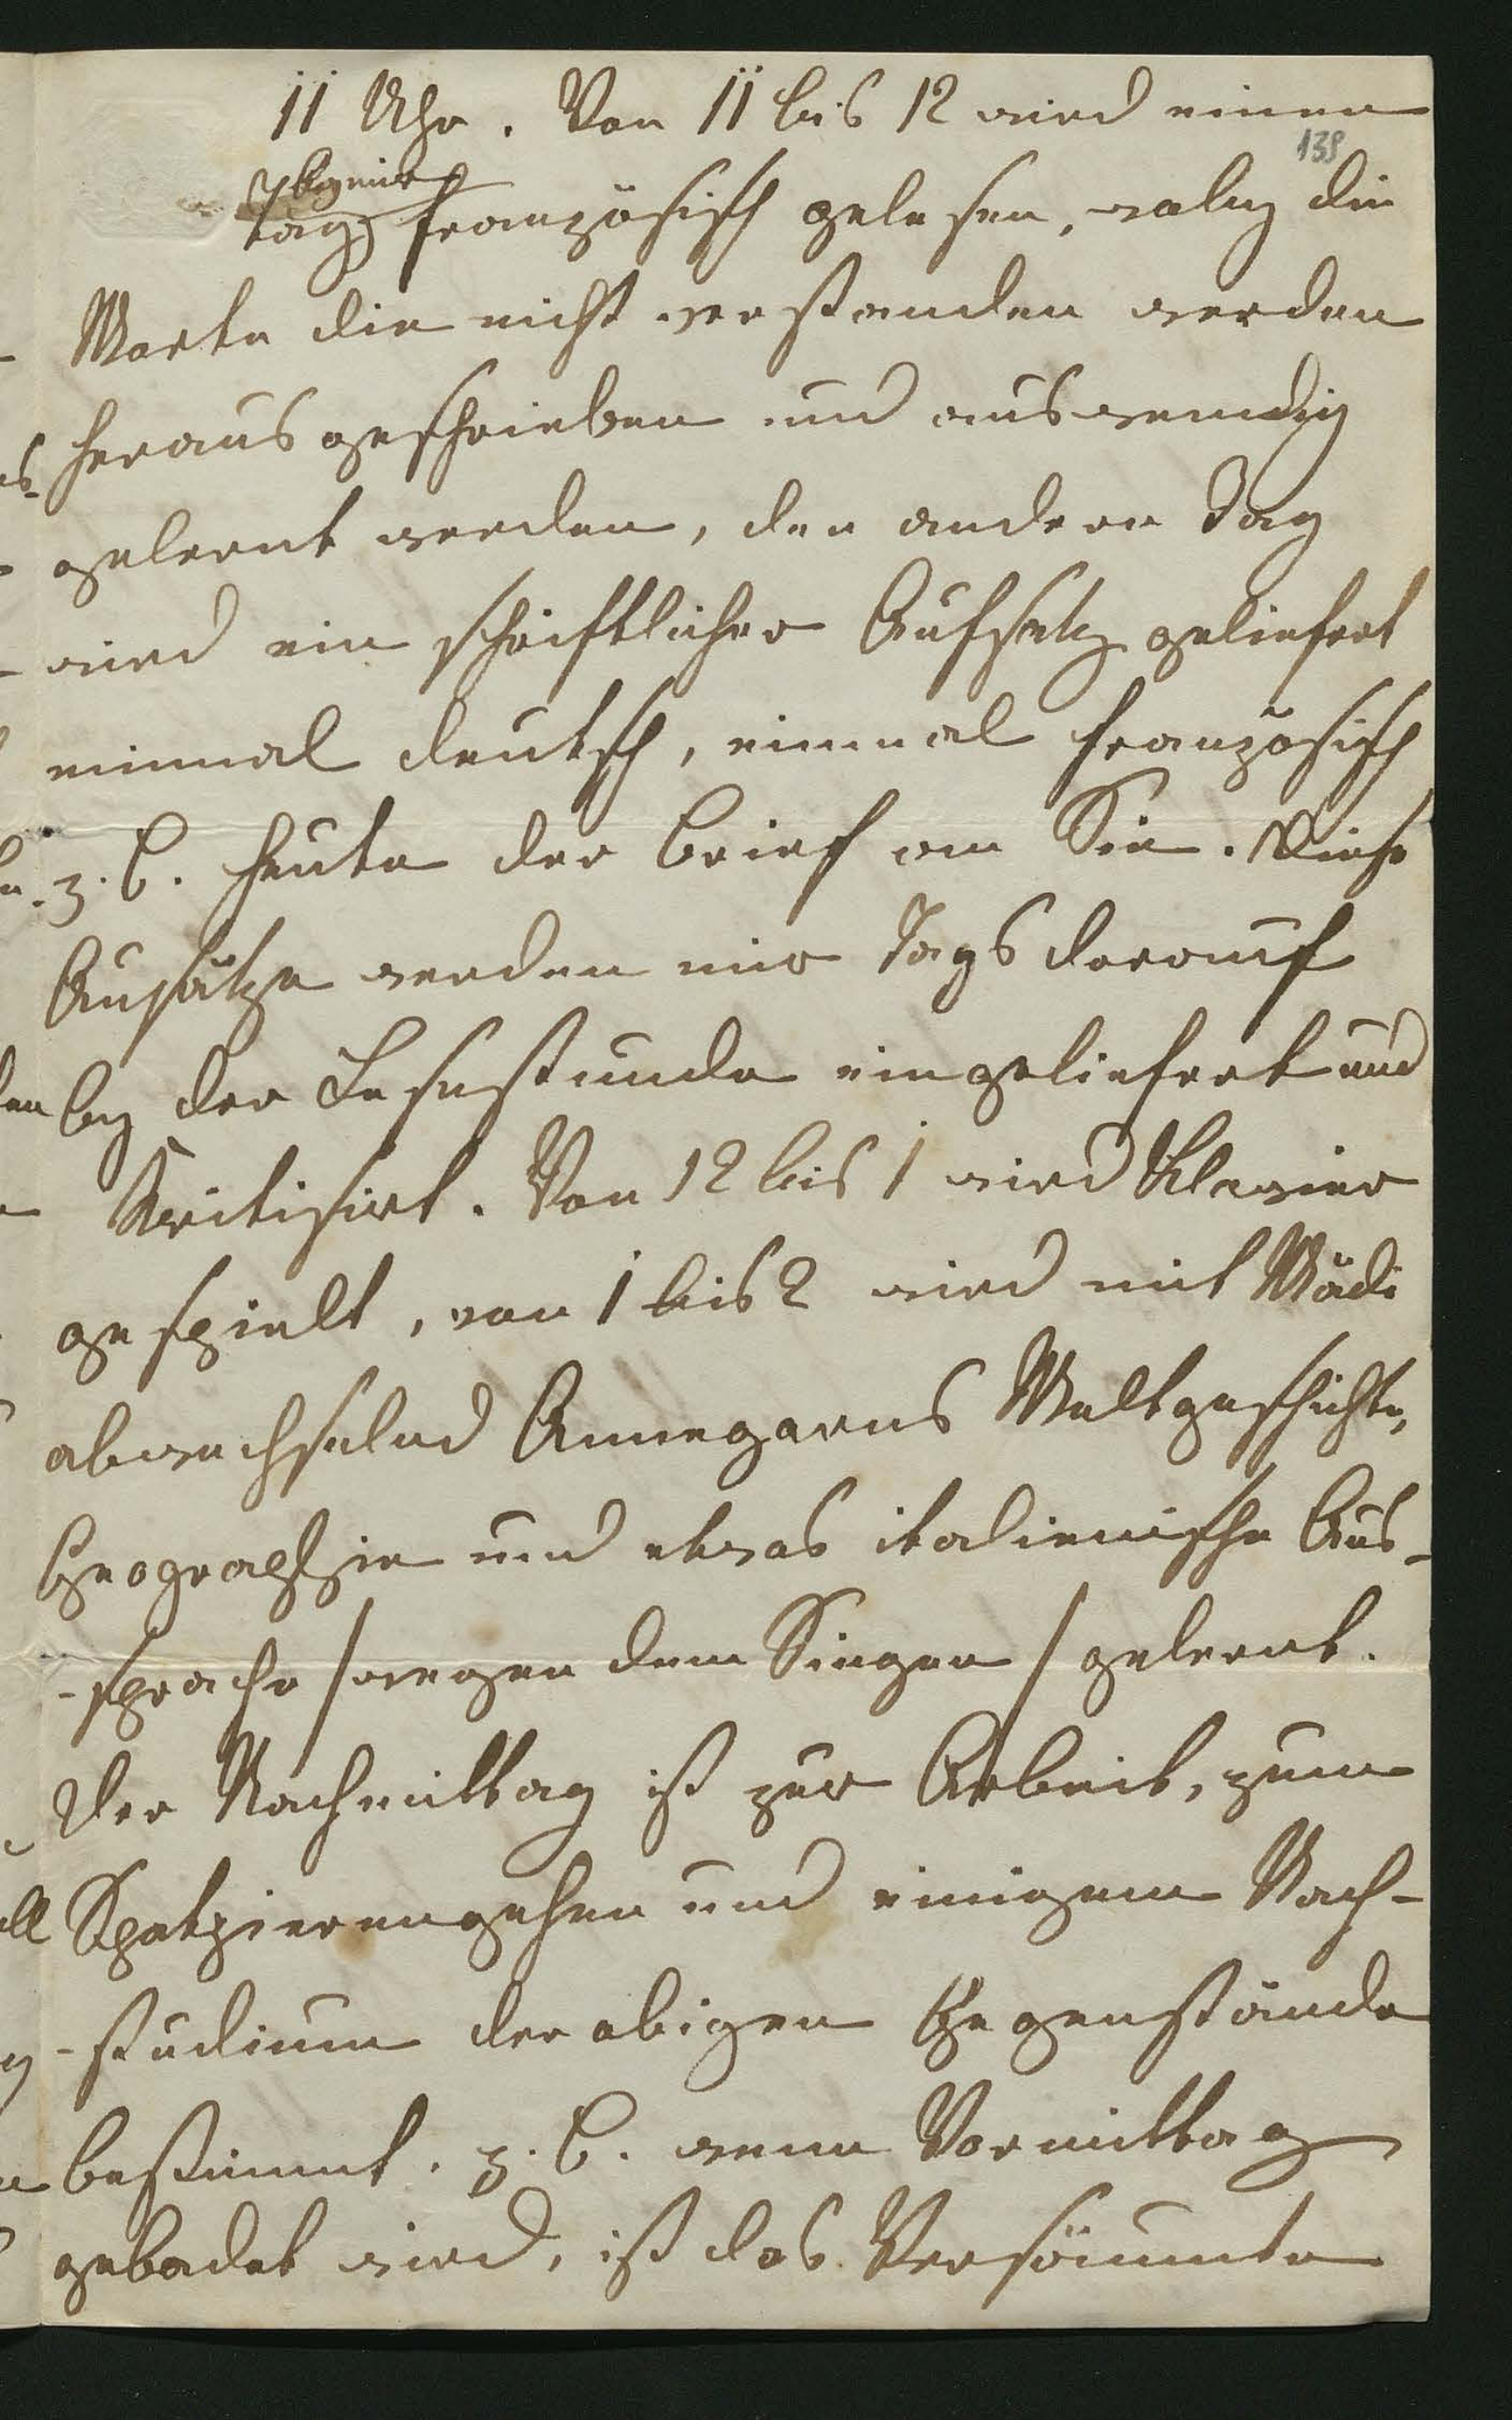 11 Uhr. Von 11 bis 12 wird einen
139
bey mir
Tag französisch gelesen, wobey die
Worte die nicht verstanden werden
herausgeschrieben und auswendig
gelernt werden, den andern Tag
wird ein schriftlicher Aufsatz geliefert
einmal deutsch, einmal französisch
z. B. heute der Brief an Sie. Diese
Aufsätze werden mir Tags darauf
bey der Lesestunde eingeliefert und
Kritisirt. Von 12 bis 1 wird Klavier
gespielt, von 1 bis 2 wird mit Mädi
abwechselnd Annegarns Weltgeschichte,
Geographie und etwas italienische Aus-
-sprache /wegen dem Singen/ gelernt.
Der Nachmittag ist zur Arbeit, zum
Spatzierengehen und einigem Nach-
-studium der obigen Gegenstände
bestimmt. z. B. wenn Vormittag
gebadet wird, ist das Versäumte